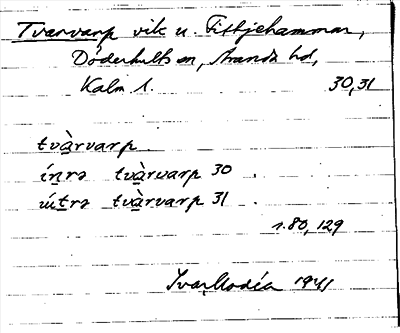 Tvarvarp vik u. Fittjehammar,
Döderhults sn, Stranda hd,
Kalm l. 30,31
tvàrvarp
ínrə tvàrvarp 30 .
útrə tvàrvarp 31 .
1.80, 129
Ivar Modéer 1941